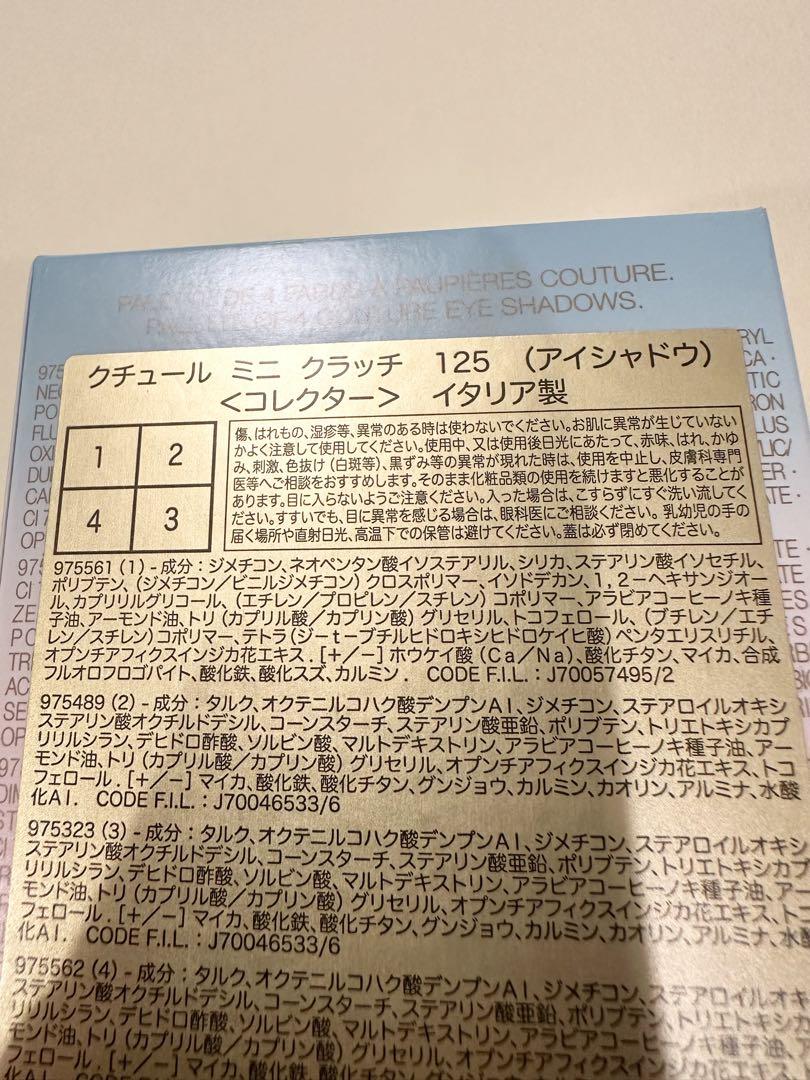 PALETTE DE 4 FARDS À PAUPIÈRES COUTURE.
PALETTE OF 4 COUTURE EYE SHADOWS.
クチュール ミニ クラッチ 125 (アイシャドウ)
<コレクター> イタリア製
1 2
4 3
傷、はれもの、湿疹等、異常のある時は使わないでください。お肌に異常が生じていない
かよく注意して使用してください。使用中、又は使用後日光にあたって、赤味、はれ、かゆ
み、刺激、色抜け(白斑等)、黒ずみ等の異常が現れた時は、使用を中止し、皮膚科専門
医等へご相談をおすすめします。そのまま化粧品類の使用を続けますと悪化することが
あります。目に入らないようご注意ください。入った場合は、こすらずにすぐ洗い流してく
ださい。すすいでも、目に異常を感じる場合は、眼科医にご相談ください。乳幼児の手の
届く場所や直射日光、高温下での保管は避けてください。蓋は必ず閉めてください。
975561 (1) - 成分:ジメチコン、ネオペンタン酸イソステアリル、シリカ、ステアリン酸イソセチル、
ポリブテン、(ジメチコン/ビニルジメチコン)クロスポリマー、イソドデカン、1,2-ヘキサンジオー
ル、カプリリルグリコール、(エチレン/プロピレン/スチレン)コポリマー、アラビアコーヒーノキ種
子油、アーモンド油、トリ(カプリル酸/カプリン酸)グリセリル、トコフェロール、(ブチレン/エチ
レン/スチレン)コポリマー、テトラ(ジ-t-ブチルヒドロキシヒドロケイヒ酸)ペンタエリスリチル、
オプンチアフィクスインジカ花エキス.[+/-]ホウケイ酸(Ca/Na)、酸化チタン、マイカ、合成
フルオロフロゴパイト、酸化鉄、酸化スズ、カルミン. CODE F.I.L.:J70057495/2
975489 (2) - 成分:タルク、オクテニルコハク酸デンプンAl、ジメチコン、ステアロイルオキシ
ステアリン酸オクチルドデシル、コーンスターチ、ステアリン酸亜鉛、ポリブテン、トリエトキシカプ
リリルシラン、デヒドロ酢酸、ソルビン酸、マルトデキストリン、アラビアコーヒーノキ種子油、アー
モンド油、トリ(カプリル酸/カプリン酸)グリセリル、オプンチアフィクスインジカ花エキス、トコ
フェロール.[+/-]マイカ、酸化鉄、酸化チタン、グンジョウ、カルミン、カオリン、アルミナ、水酸
化Al. CODE F.I.L.:J70046533/6
975323 (3) - 成分:タルク、オクテニルコハク酸デンプンAl、ジメチコン、ステアロイルオキシ
ステアリン酸オクチルドデシル、コーンスターチ、ステアリン酸亜鉛、ポリブテン、トリエトキシカプ
リリルシラン、デヒドロ酢酸、ソルビン酸、マルトデキストリン、アラビアコーヒーノキ種子油、アー
モンド油、トリ(カプリル酸/カプリン酸)グリセリル、オプンチアフィクスインジカ花エキス、トコ
フェロール.[+/-]マイカ、酸化鉄、酸化チタン、グンジョウ、カルミン、カオリン、アルミナ、水酸
化Al. CODE F.I.L.:J70046533/6
975562 (4) - 成分:タルク、オクテニルコハク酸デンプンAl、ジメチコン、ステアロイルオキシ
ステアリン酸オクチルドデシル、コーンスターチ、ステアリン酸亜鉛、ポリブテン、トリエトキシカプ
リリルシラン、デヒドロ酢酸、ソルビン酸、マルトデキストリン、アラビアコーヒーノキ種子油、アー
モンド油、トリ(カプリル酸/カプリン酸)グリセリル、オプンチアフィクスインジカ花エキス、トコ
フェロール.[+/-]マイカ、酸化鉄、酸化チタン、グンジョウ、カルミン、カオリン、アルミナ、水酸